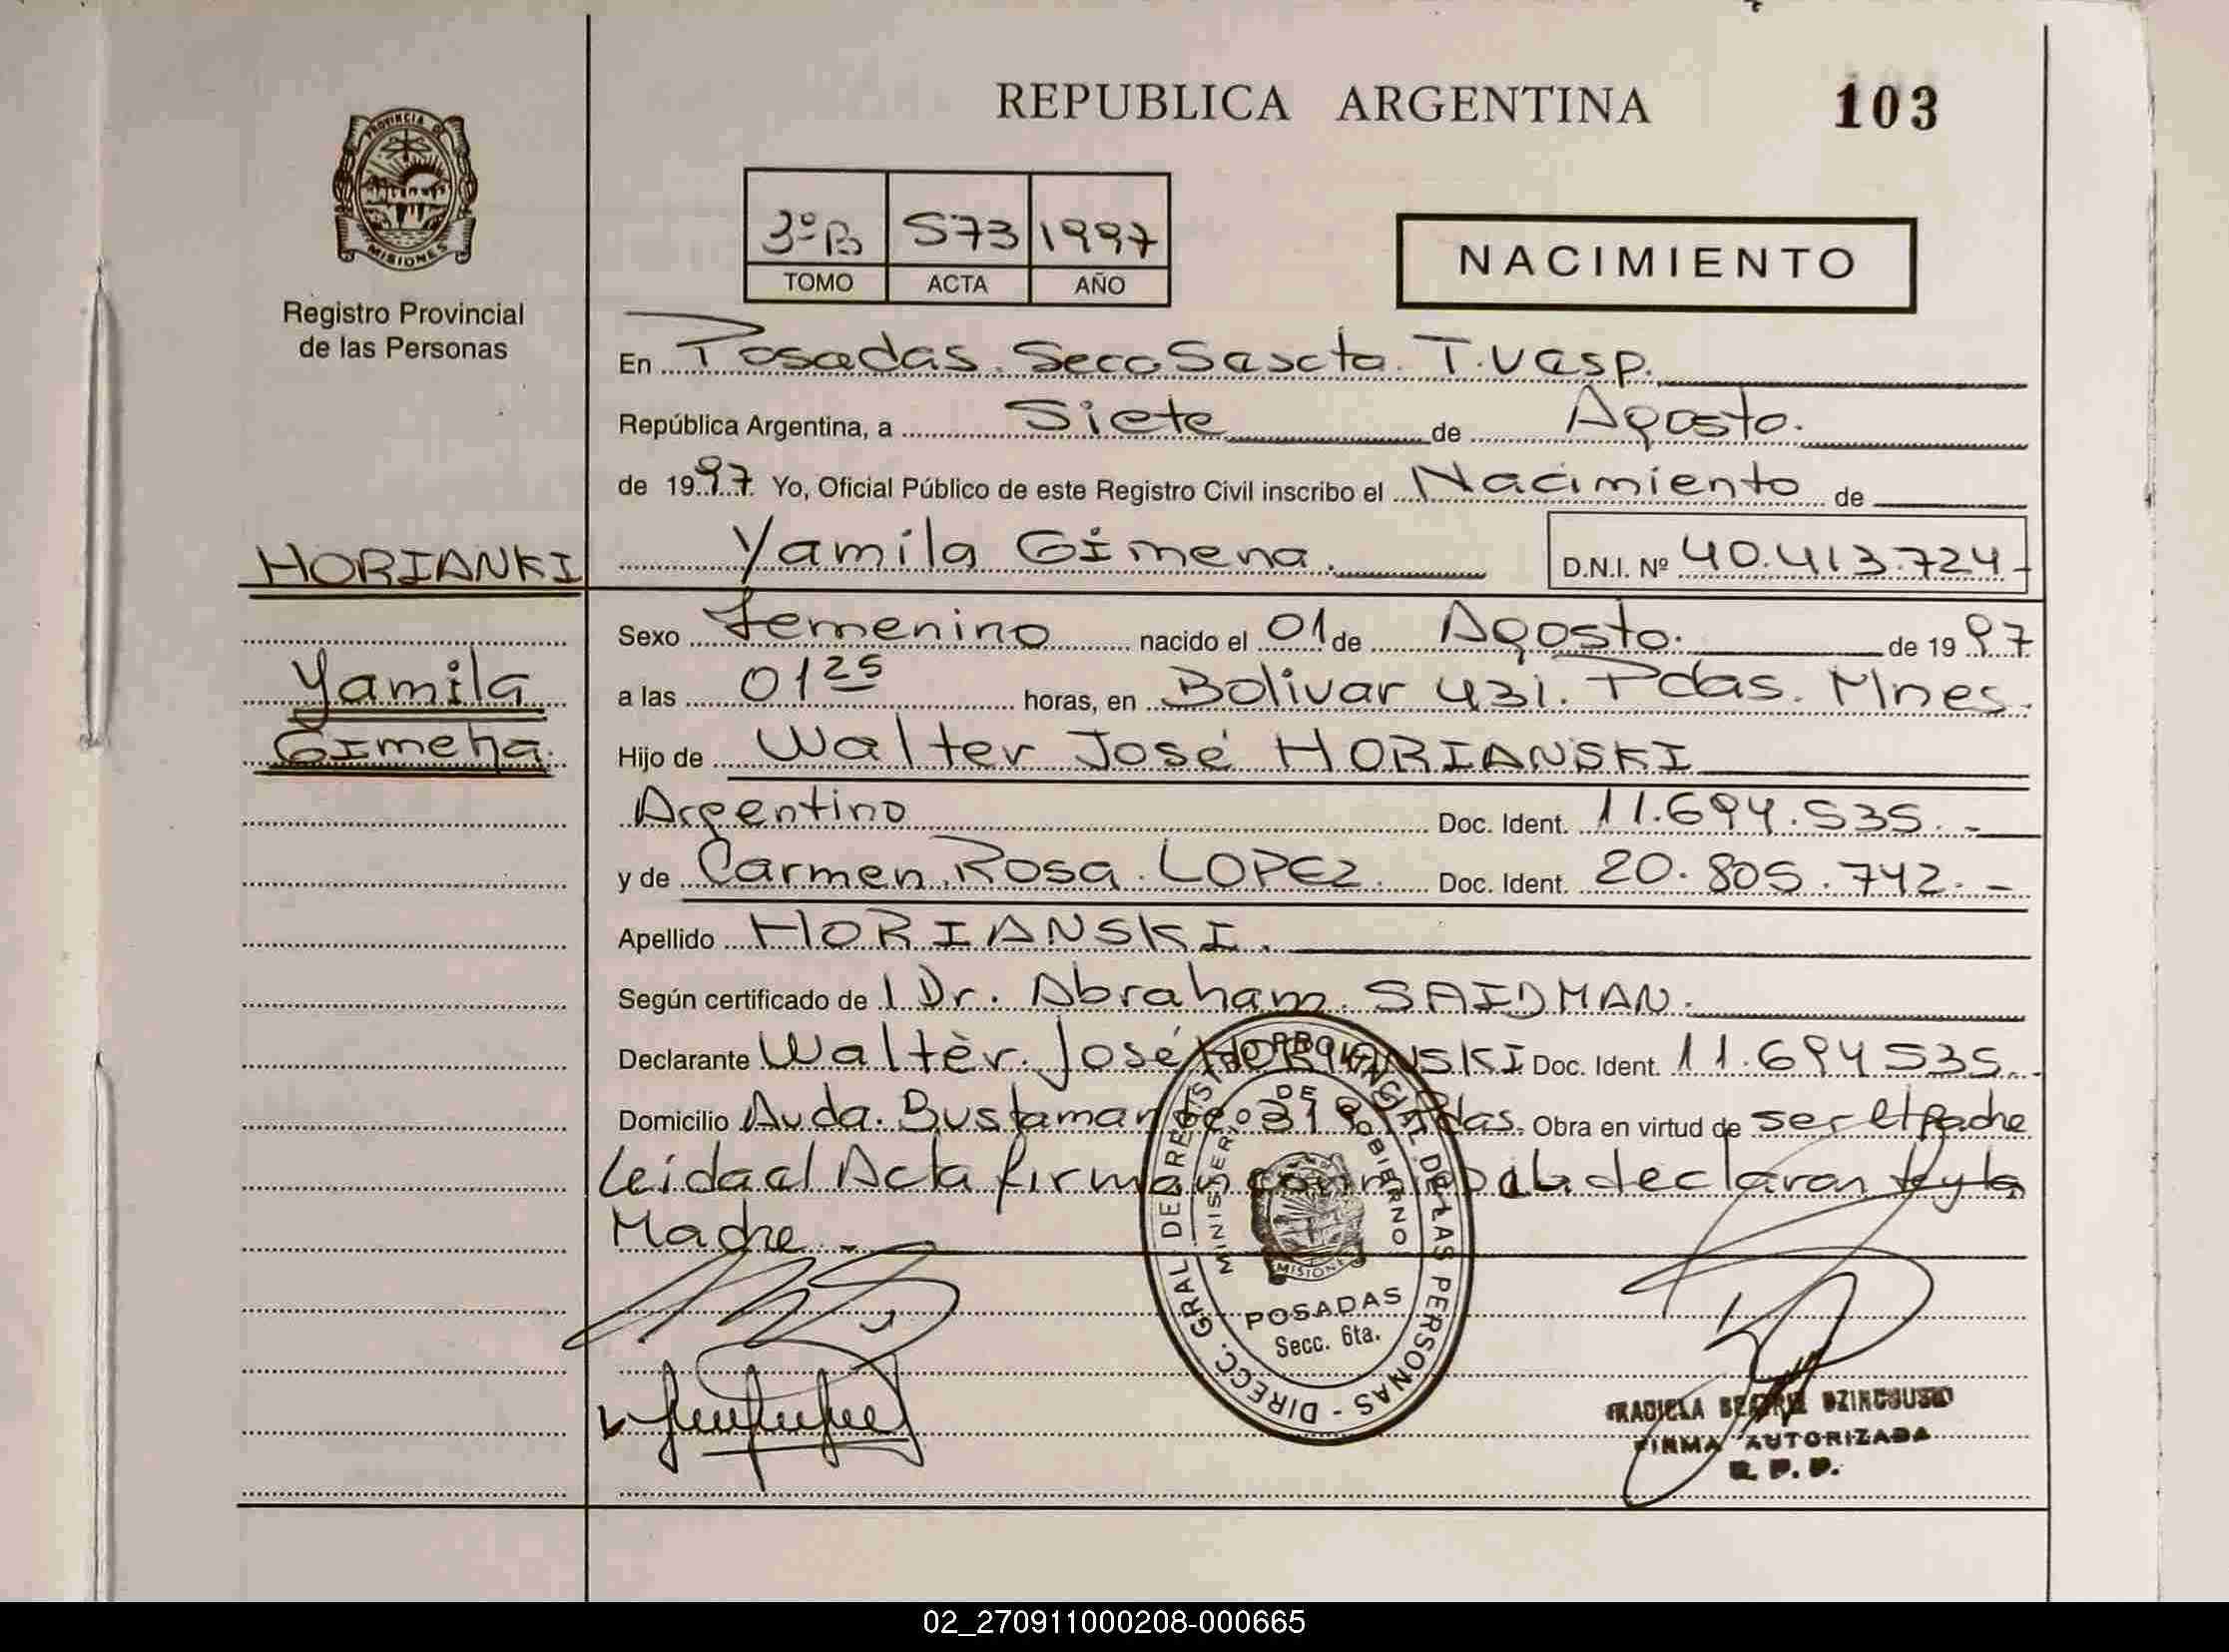 REPUBLICA ARGENTINA
103
PROVINCIA DE
MISIONES
Registro Provincial
de las Personas
3º B 573 1997
TOMO ACTA AÑO
NACIMIENTO
En Posadas. Secc Sascta. T. vasp.
República Argentina, a Siete de Agosto.
de 1997 Yo, Oficial Público de este Registro Civil inscribo el Nacimiento de
Yamila Gimena. D.N.I. Nº 40.413.724
HORIANKI
Yamila
Gimena.
Sexo Femenino nacido el 01 de Agosto. de 1997
a las 01 25 horas, en Bolivar 431. Pdas. Mnes.
Hijo de Walter José HORIANSKI
Argentino Doc. Ident. 11.694.535.-
y de Carmen Rosa LOPEZ. Doc. Ident. 20.805.742.-
Apellido HORIANSKI.
Según certificado de l Dr. Abraham SAIDMAN.
Declarante Walter José HORIANSKI Doc. Ident. 11.694535.
Domicilio Avda. Bustamante 319 Pdas. Obra en virtud de ser el padre
Leida el Acta firman declaran y la
Madre.-
DIRECC. GRAL. DE REGISTRO PROVINCIAL DE LAS PERSONAS -
MINISTERIO DE GOBIERNO
MISIONES
POSADAS
Secc. 6ta.
BEATRIZ
FIRMA AUTORIZADA
R. P. P.
02_270911000208-000665